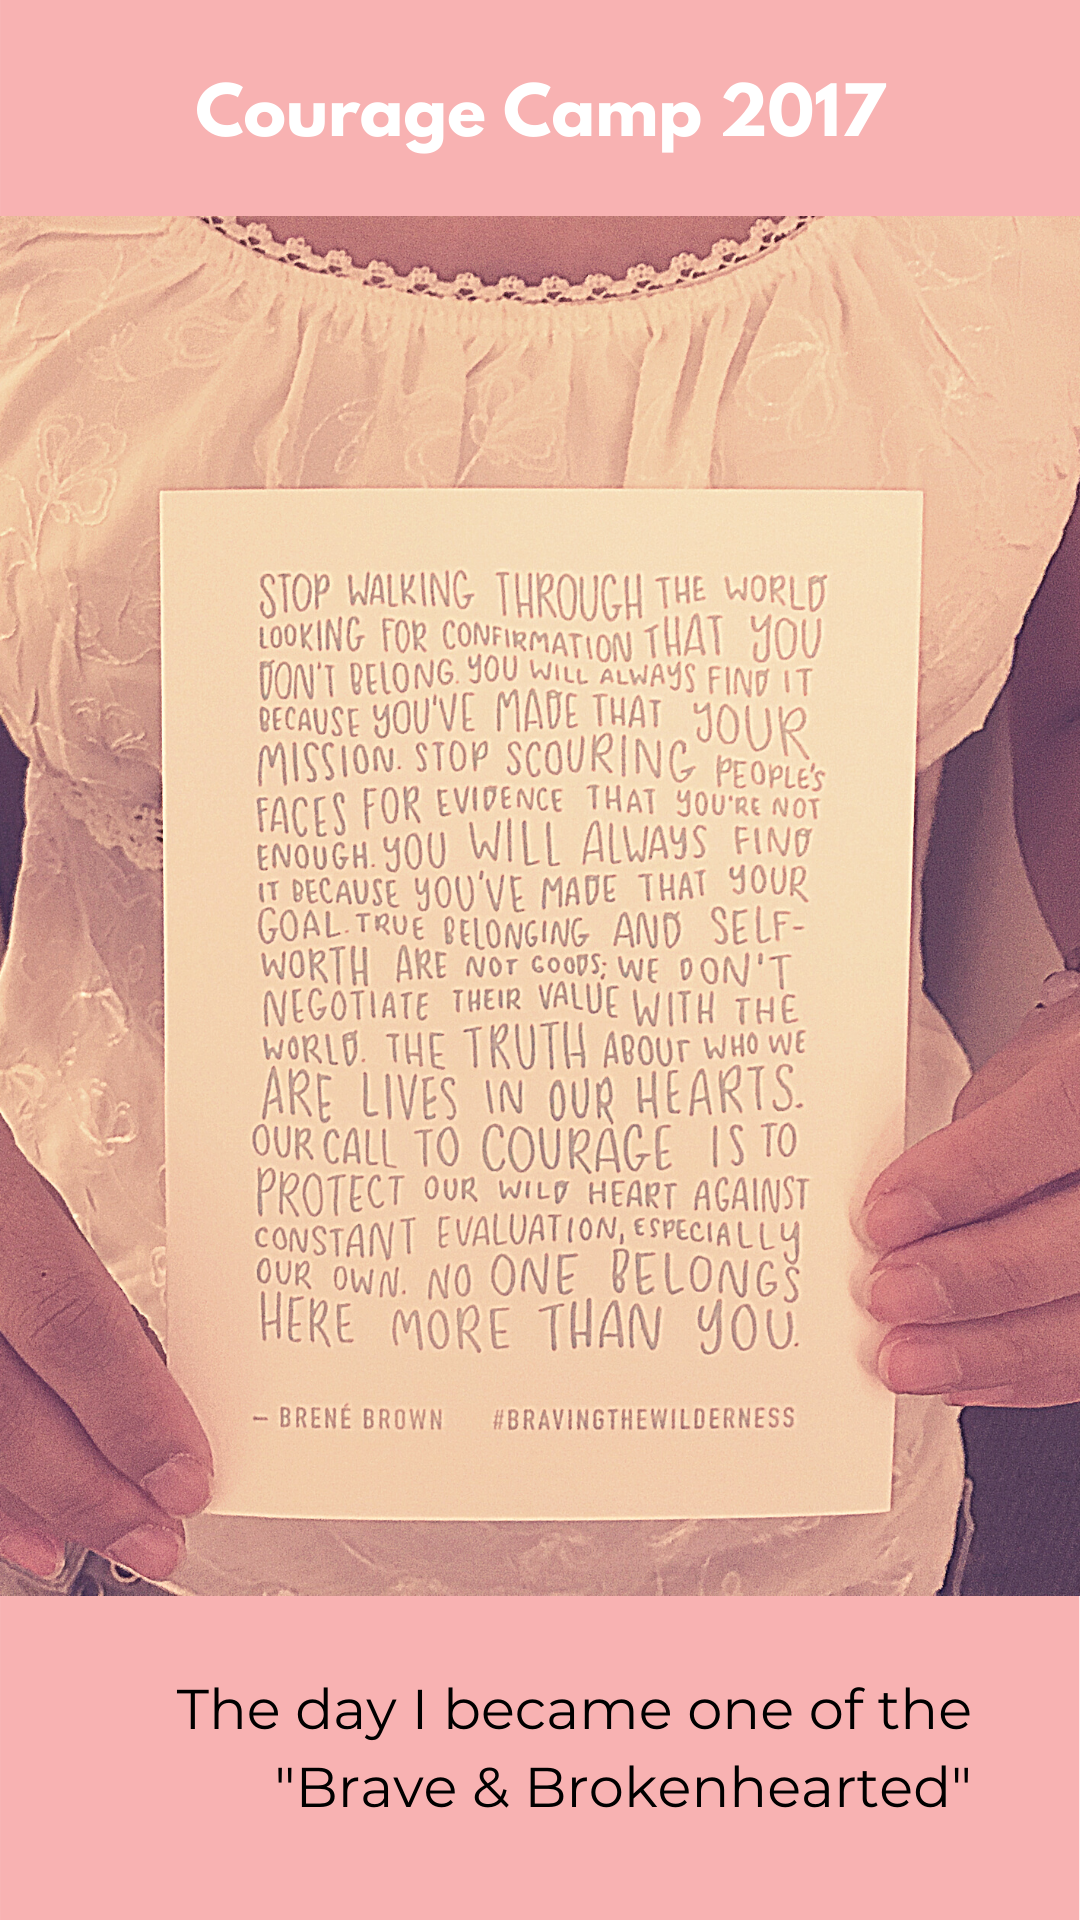 Courage Camp 2017
STOP WALKING THROUGH THE WORLD
LOOKING FOR CONFIRMATION THAT YOU
DON'T BELONG. YOU WILL ALWAYS FIND IT
BECAUSE YOU'VE MADE THAT YOUR
MISSION. STOP SCOURING PEOPLE'S
FACES FOR EVIDENCE THAT YOU'RE NOT
ENOUGH. YOU WILL ALWAYS FIND
IT BECAUSE YOU'VE MADE THAT YOUR
GOAL. TRUE BELONGING AND SELF-
WORTH ARE NOT GOODS; WE DON'T
NEGOTIATE THEIR VALUE WITH THE
WORLD. THE TRUTH ABOUT WHO WE
ARE LIVES IN OUR HEARTS.
OUR CALL TO COURAGE IS TO
PROTECT OUR WILD HEART AGAINST
CONSTANT EVALUATION, ESPECIALLY
OUR OWN. NO ONE BELONGS
HERE MORE THAN YOU.
– BRENÉ BROWN #BRAVINGTHEWILDERNESS
The day I became one of the
"Brave & Brokenhearted"